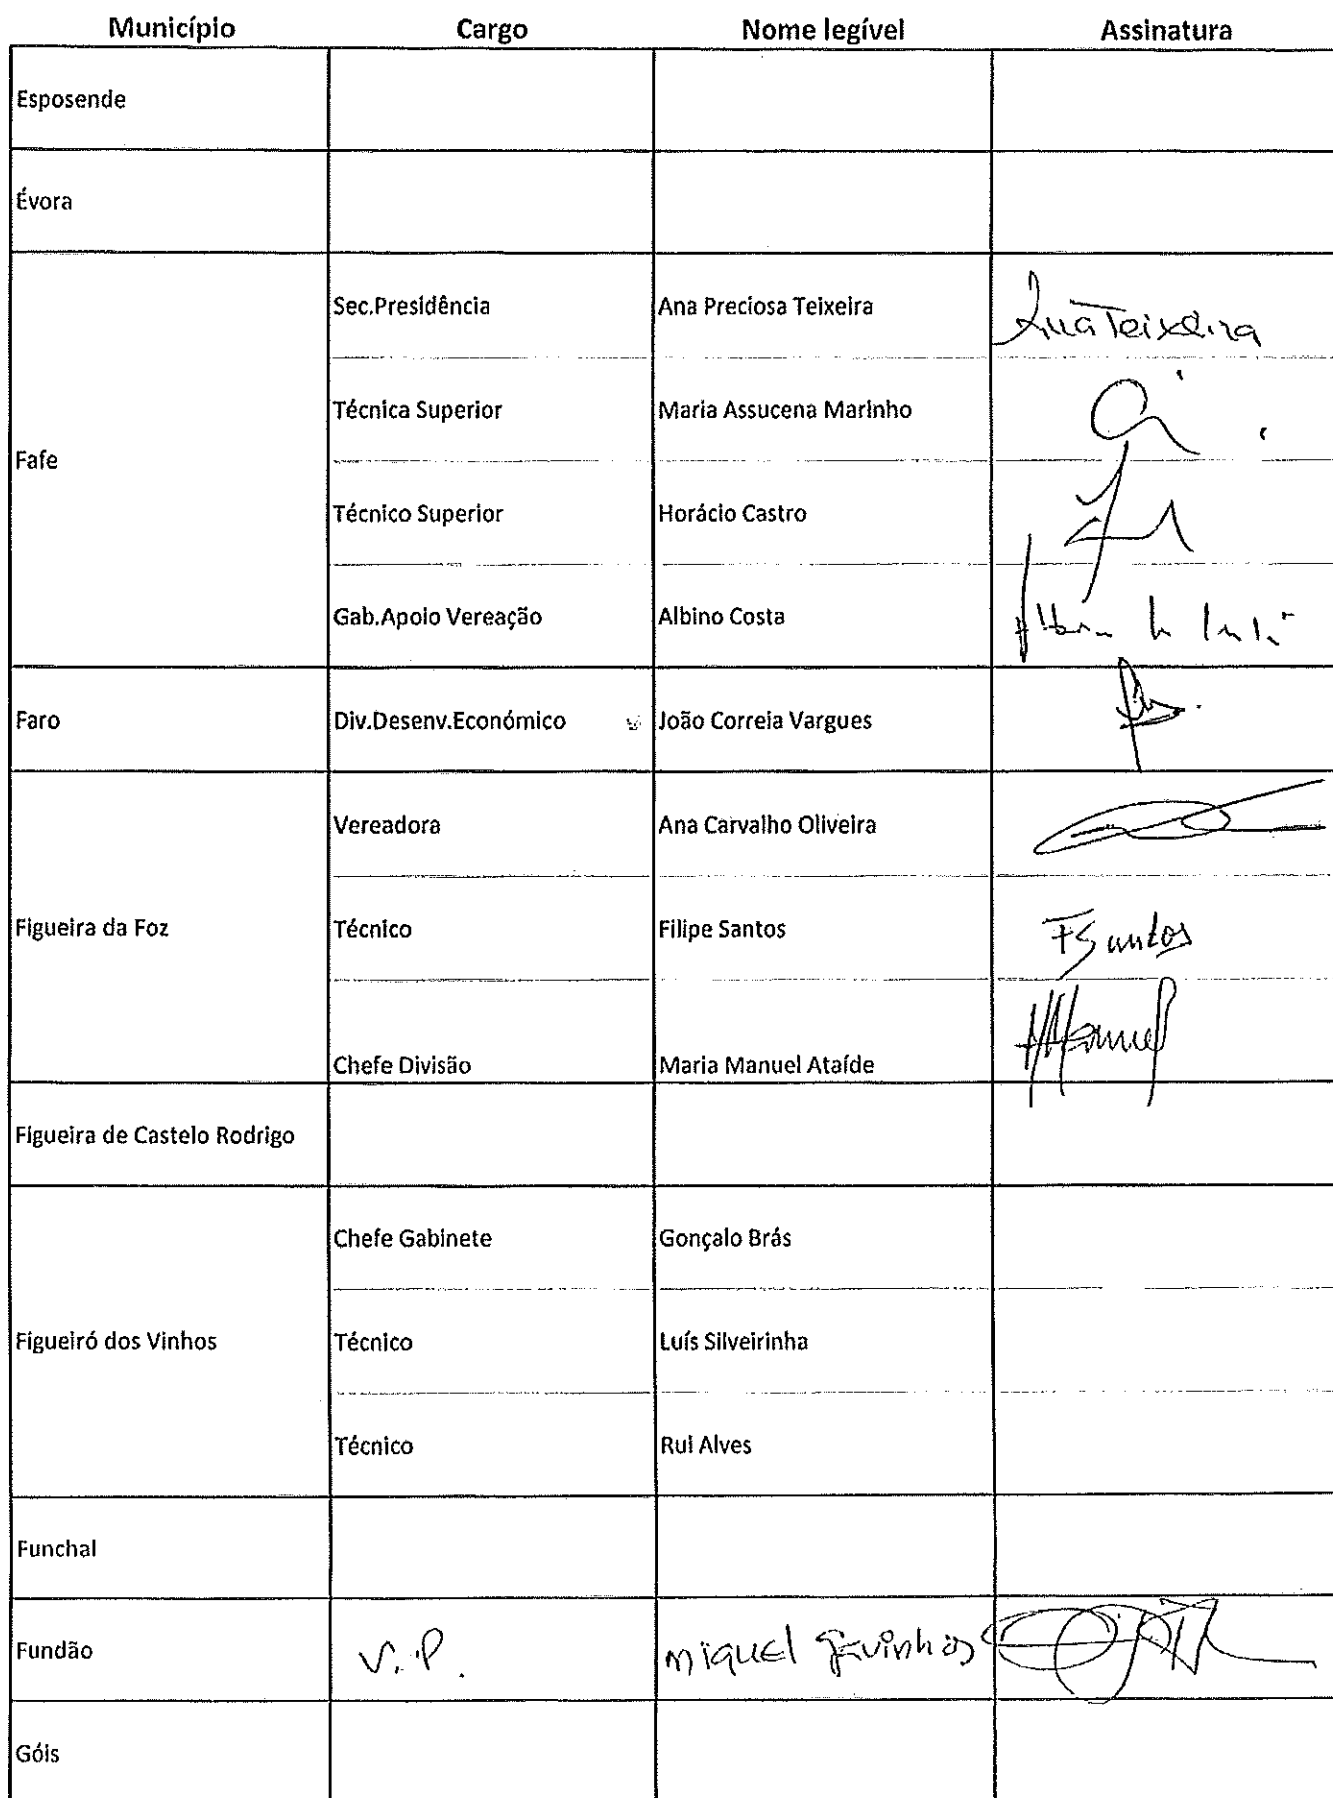 Município Cargo Nome legível Assinatura
Esposende
Évora
Fafe
Sec.Presidência Ana Preciosa Teixeira Ana Teixeira
Técnica Superior Maria Assucena Marinho
Técnico Superior Horácio Castro
Gab.Apoio Vereação Albino Costa
Faro Div.Desenv.Económico João Correia Vargues
Figueira da Foz
Vereadora Ana Carvalho Oliveira
Técnico Filipe Santos FSantos
Chefe Divisão Maria Manuel Ataíde MManuel
Figueira de Castelo Rodrigo
Figueiró dos Vinhos
Chefe Gabinete Gonçalo Brás
Técnico Luís Silveirinha
Técnico Rui Alves
Funchal
Fundão V.P. Miguel Gavinhos
Góis